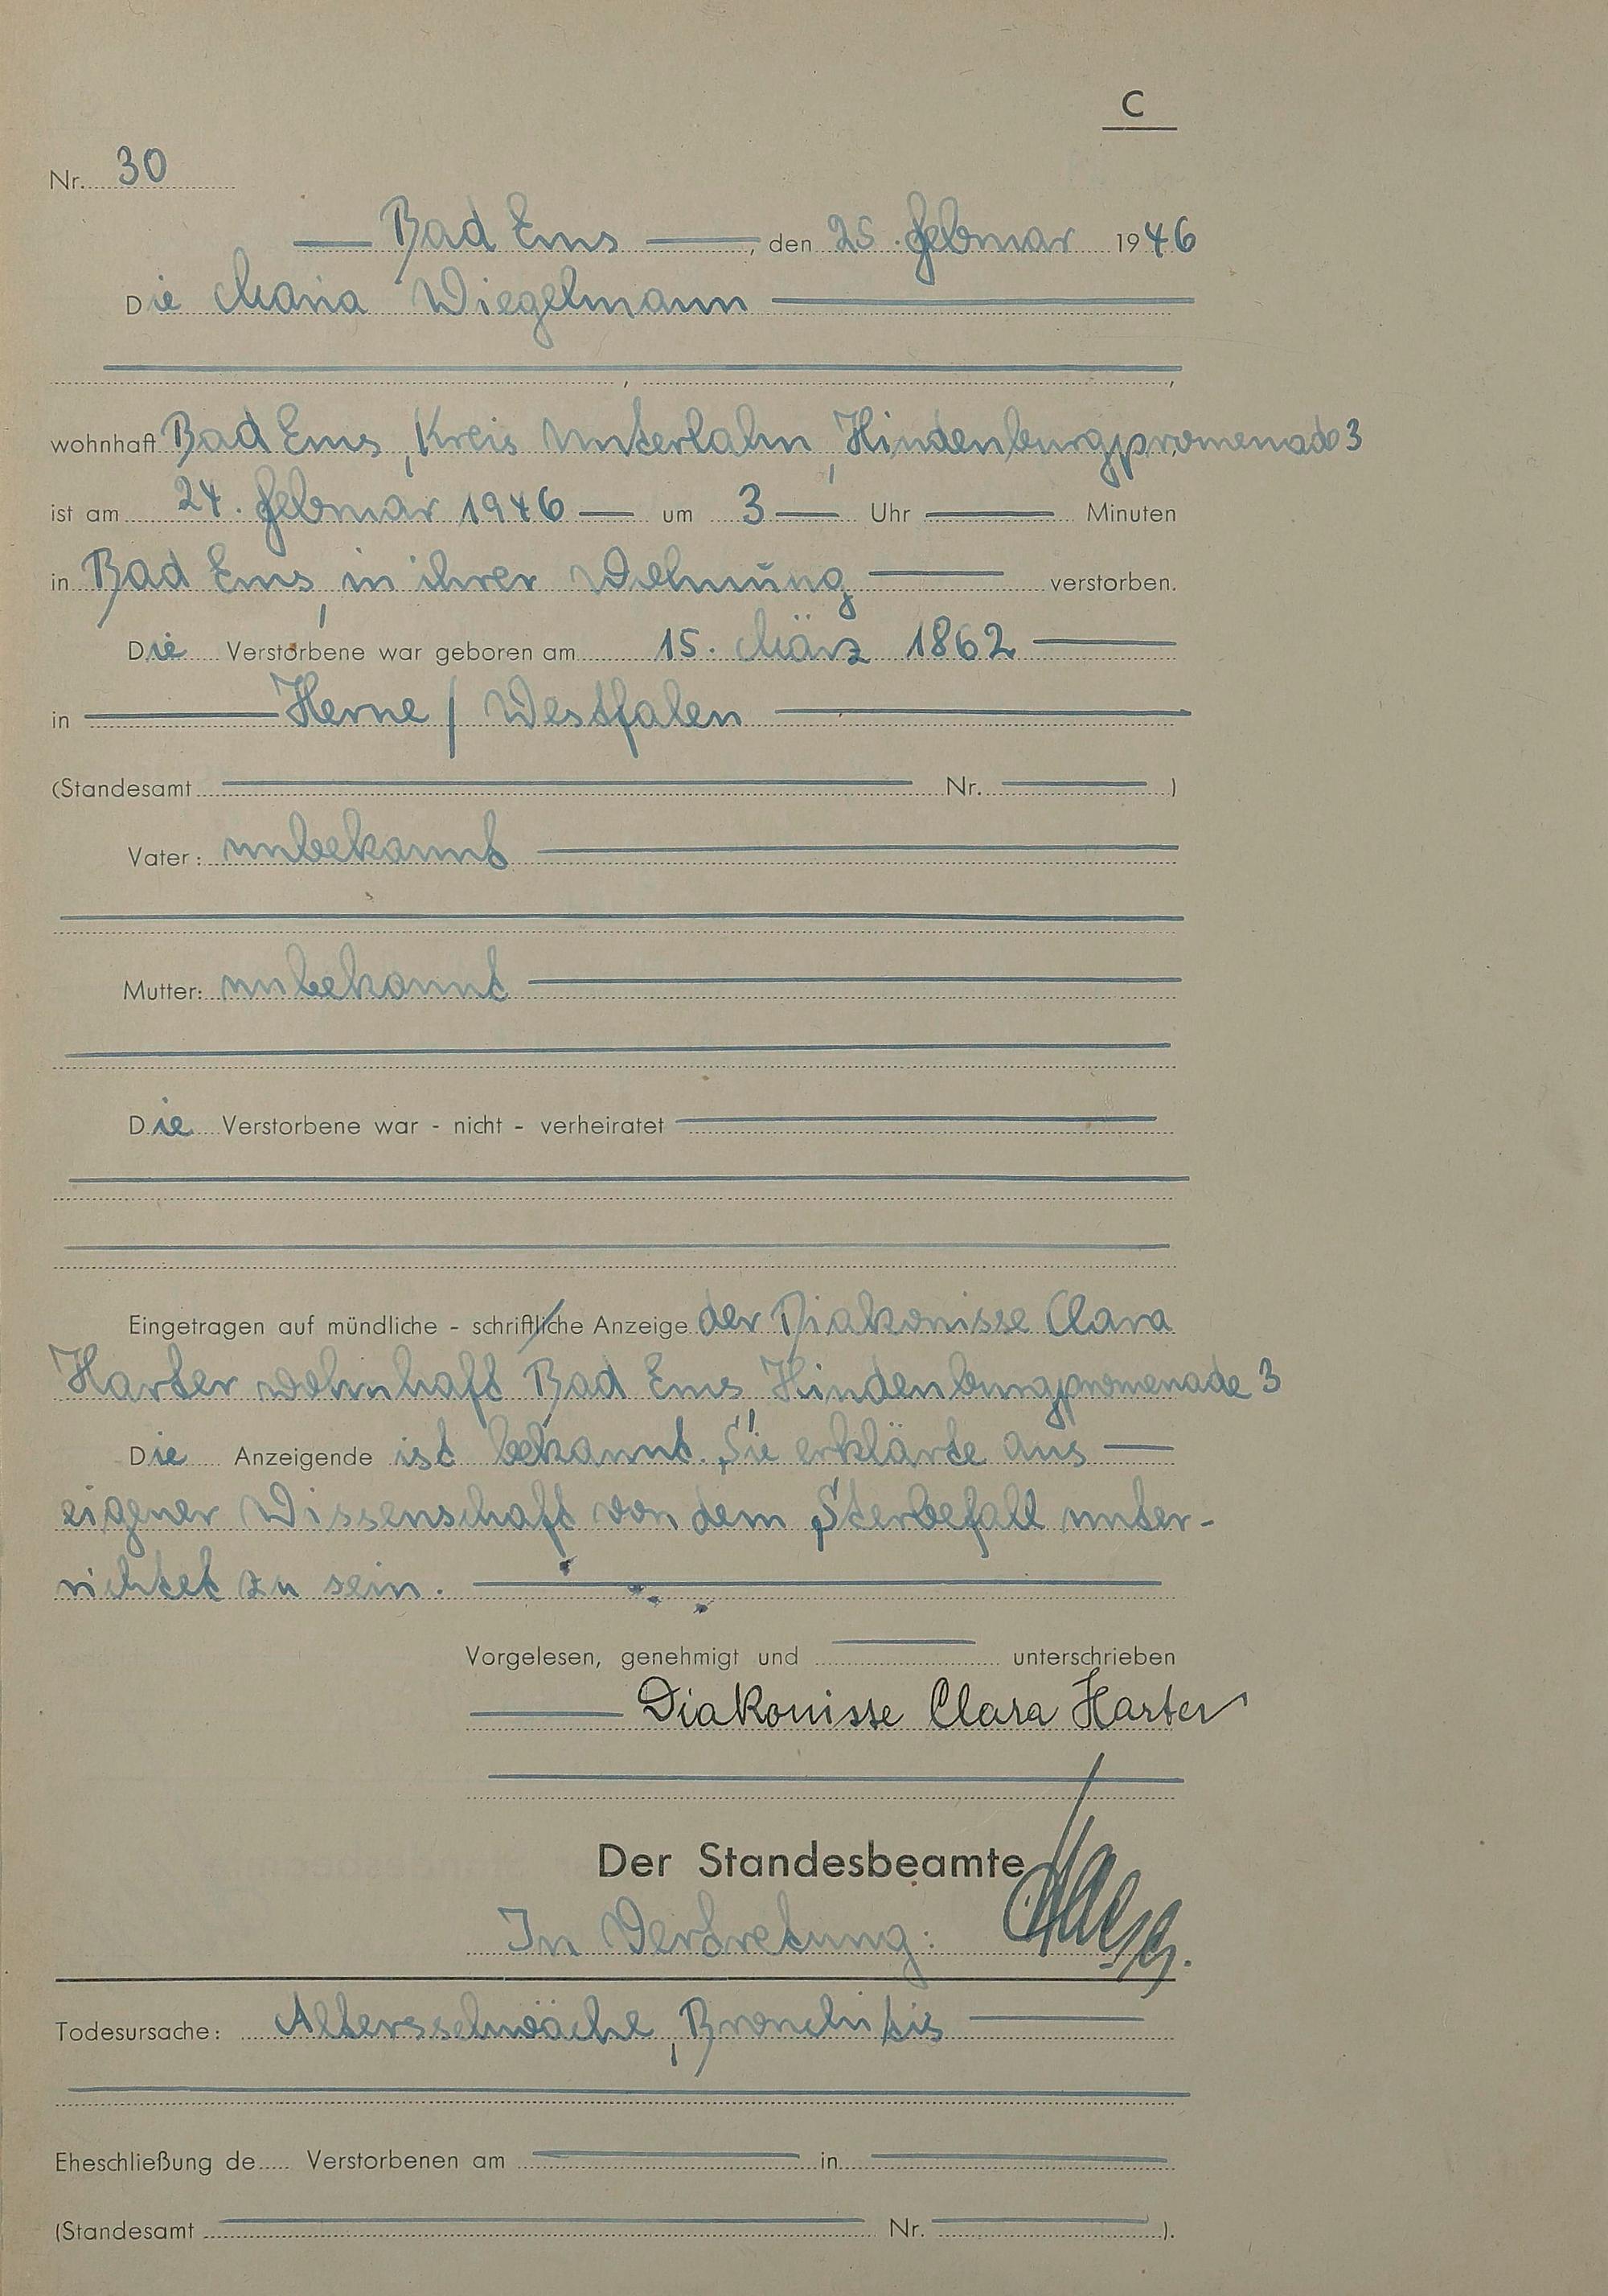 C
Nr. 30
Bad Ems, den 25. Februar 1946
Die Maria Wiegelmann
, ,
wohnhaft Bad Ems, Kreis Unterlahn, Hindenburgpromenade 3
ist am 24. Februar 1946 um 3 Uhr Minuten
in Bad Ems, in ihrer Wohnung verstorben.
Die Verstorbene war geboren am 15. März 1862
in Herne / Westfalen
(Standesamt Nr. )
Vater: unbekannt
Mutter: unbekannt
Die Verstorbene war - nicht - verheiratet
Eingetragen auf mündliche - schriftliche Anzeige der Diakonisse Clara
Harter wohnhaft Bad Ems, Hindenburgpromenade 3
Die Anzeigende ist bekannt. Sie erklärte aus
eigener Wissenschaft von dem Sterbefall unter-
richtet zu sein.
Vorgelesen, genehmigt und unterschrieben
Diakonisse Clara Harter
Der Standesbeamte
In Vertretung:
Todesursache: Altersschwäche, Bronchitis
Eheschließung de Verstorbenen am in
(Standesamt Nr. ).